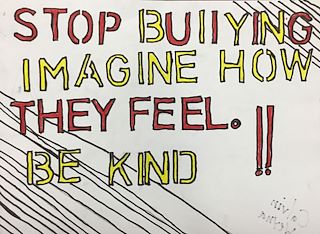 STOP BUllYING
IMAGINE HOW
THEY FEEL.
BE KIND !!
Calvin